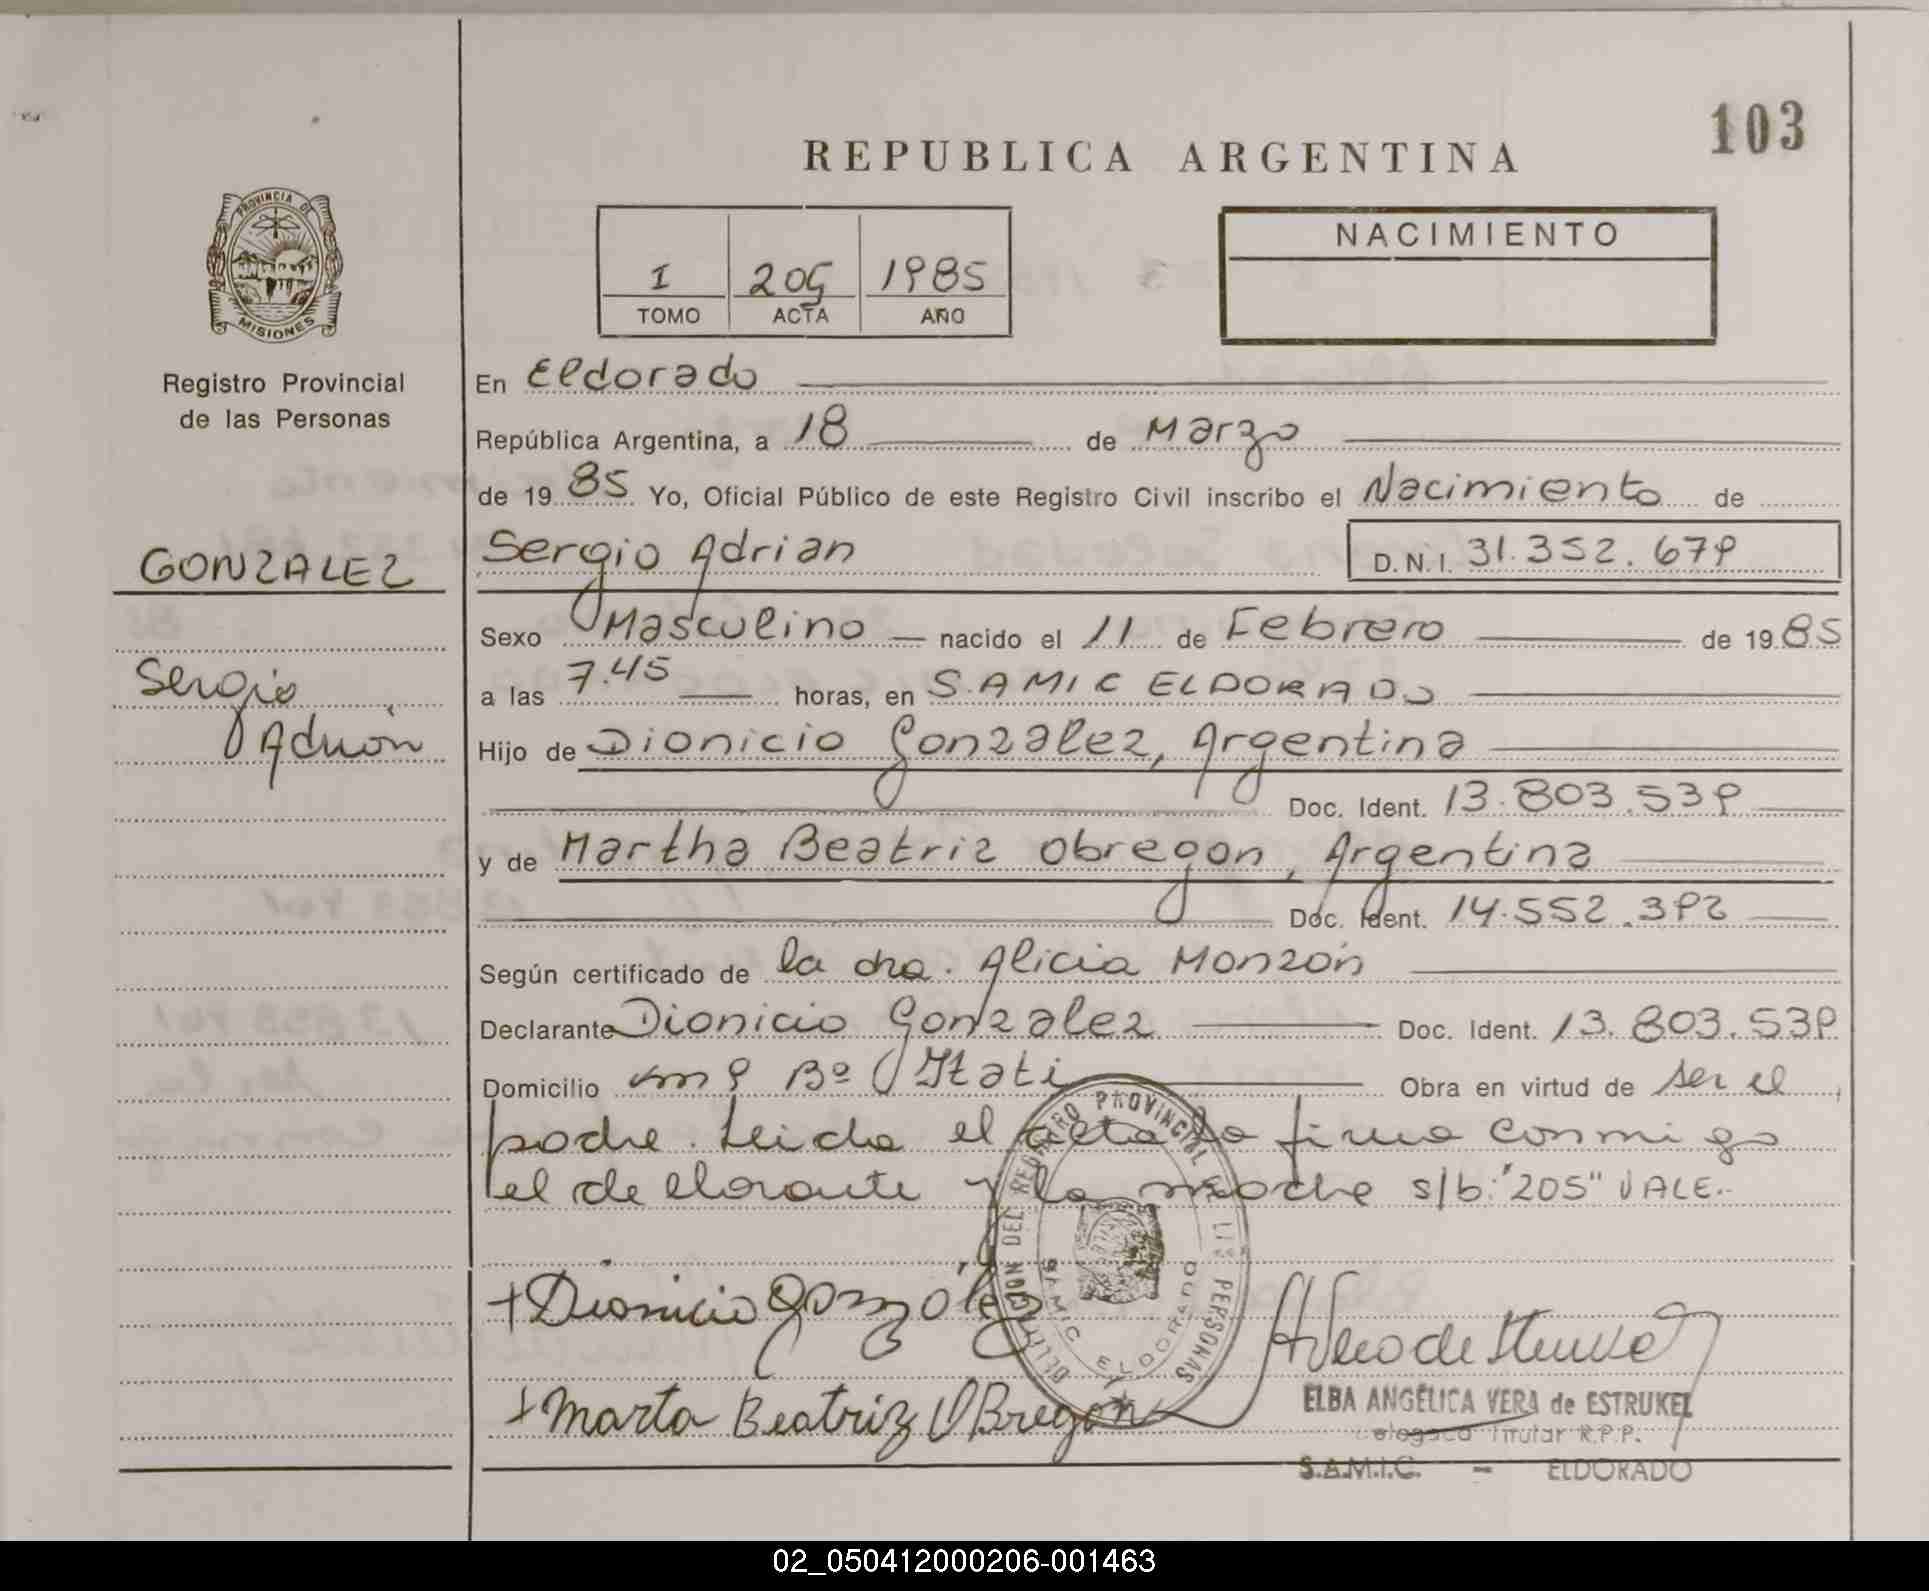 103
REPUBLICA ARGENTINA
PROVINCIA DE
MISIONES
Registro Provincial
de las Personas
I 205 1985
TOMO ACTA AÑO
NACIMIENTO
En Eldorado
República Argentina, a 18 de Marzo
de 19 85 Yo, Oficial Público de este Registro Civil inscribo el Nacimiento de
GONZALEZ
Sergio Adrian D.N.I. 31.352.679
Sergio
Adrián
Sexo Masculino nacido el 11 de Febrero de 19 85
a las 7.45 horas, en S.AMIC ELDORADO
Hijo de Dionicio Gonzalez, Argentina
Doc. Ident. 13.803.539
y de Martha Beatriz Obregon, Argentina
Doc. Ident. 14.552.392
Según certificado de la dra. Alicia Monzón
Declarante Dionicio Gonzalez Doc. Ident. 13.803.539
Domicilio km 9 Bº Itati Obra en virtud de ser el
padre. Leida el acta la firma conmigo
el declarante y la madre s/b: "205" VALE.-
DELEGACION DEL REGISTRO PROVINCIAL DE LAS PERSONAS
SAMIC ELDORADO
+Dionicio Gonzólez
+Marta Beatriz OBregón
ELBA ANGÉLICA VERA de ESTRUKEL
Delegada Titular R.P.P.
S.A.M.I.C. - ELDORADO
02_050412000206-001463